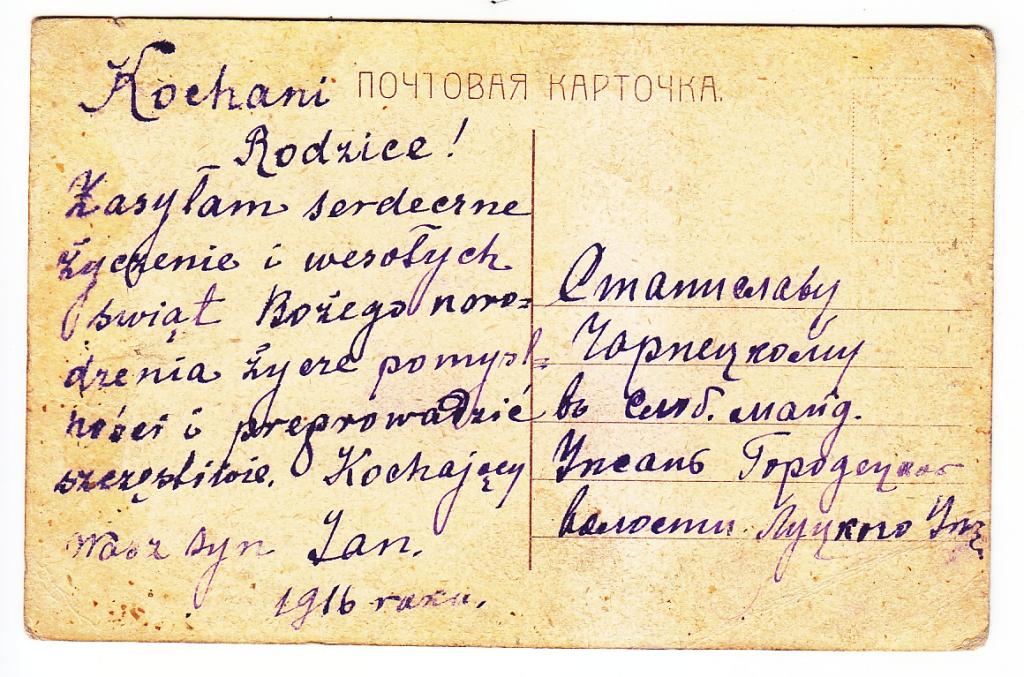 ПОЧТОВАЯ КАРТОЧКА.
Kochani
Rodzice!
Zasyłam serdeczne
życzenie i wesołych
świąt Bożego noro=
dzenia życze pomysl=
ności i preprowadzić
szczęśliwie. Kochający
wasz syn Jan.
1916 roku.
Станиславу
Чарнецкому
въ слоб. майд.
Городецкой
волости Луцкого